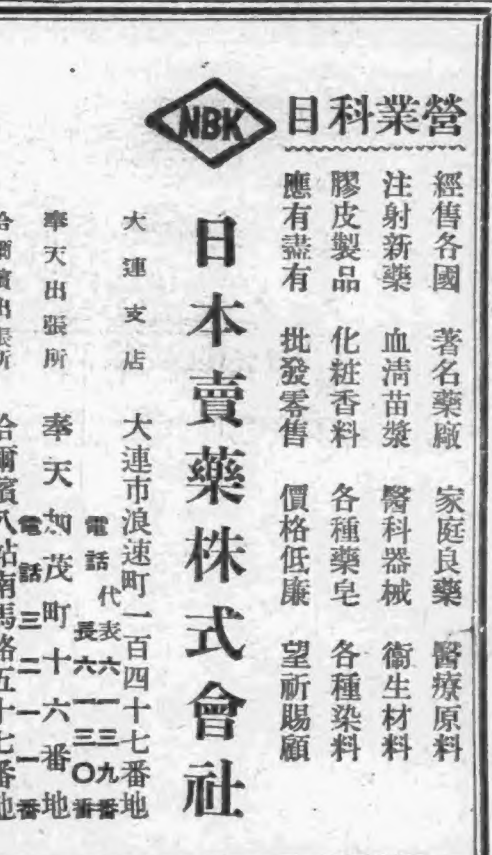 營業科目
經售各國 著名藥廠 家庭良藥 醫療原料
注射新藥 血清苗漿 醫科器械 衞生材料
膠皮製品 化粧香料 各種藥皂 各種染料
應有盡有 批發零售 價格低廉 望祈賜顧
NBK
日本賣藥株式會社
大連支店 大連市浪速町一百四十七番地
電話 代表六一三九番
長六一三〇番
奉天出張所 奉天加茂町十六番地
電話三二一一番
哈爾濱出張所 哈爾濱八站南馬路五十七番地